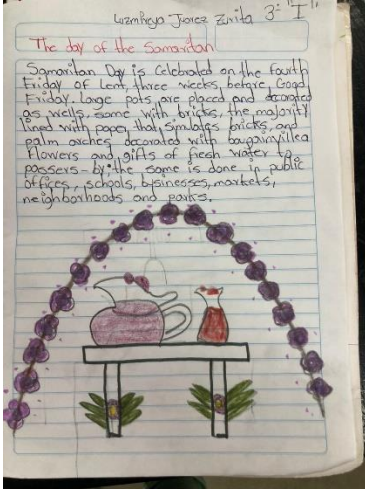 Luzmireya Juarez Zurita 3: "I"
The day of the Samaritan
Samaritan Day is Celebrated on the fourth
Friday of Lent, three weeks before Good
Friday. Large pots are placed and decorated
as wells, some with bricks, the majority
lined with paper that simulates bricks, and
palm arches decorated with bougainvillea
flowers and gifts of fresh water to
passers-by the same is done in public
offices, schools, businesses, markets,
neighborhoods and parks.